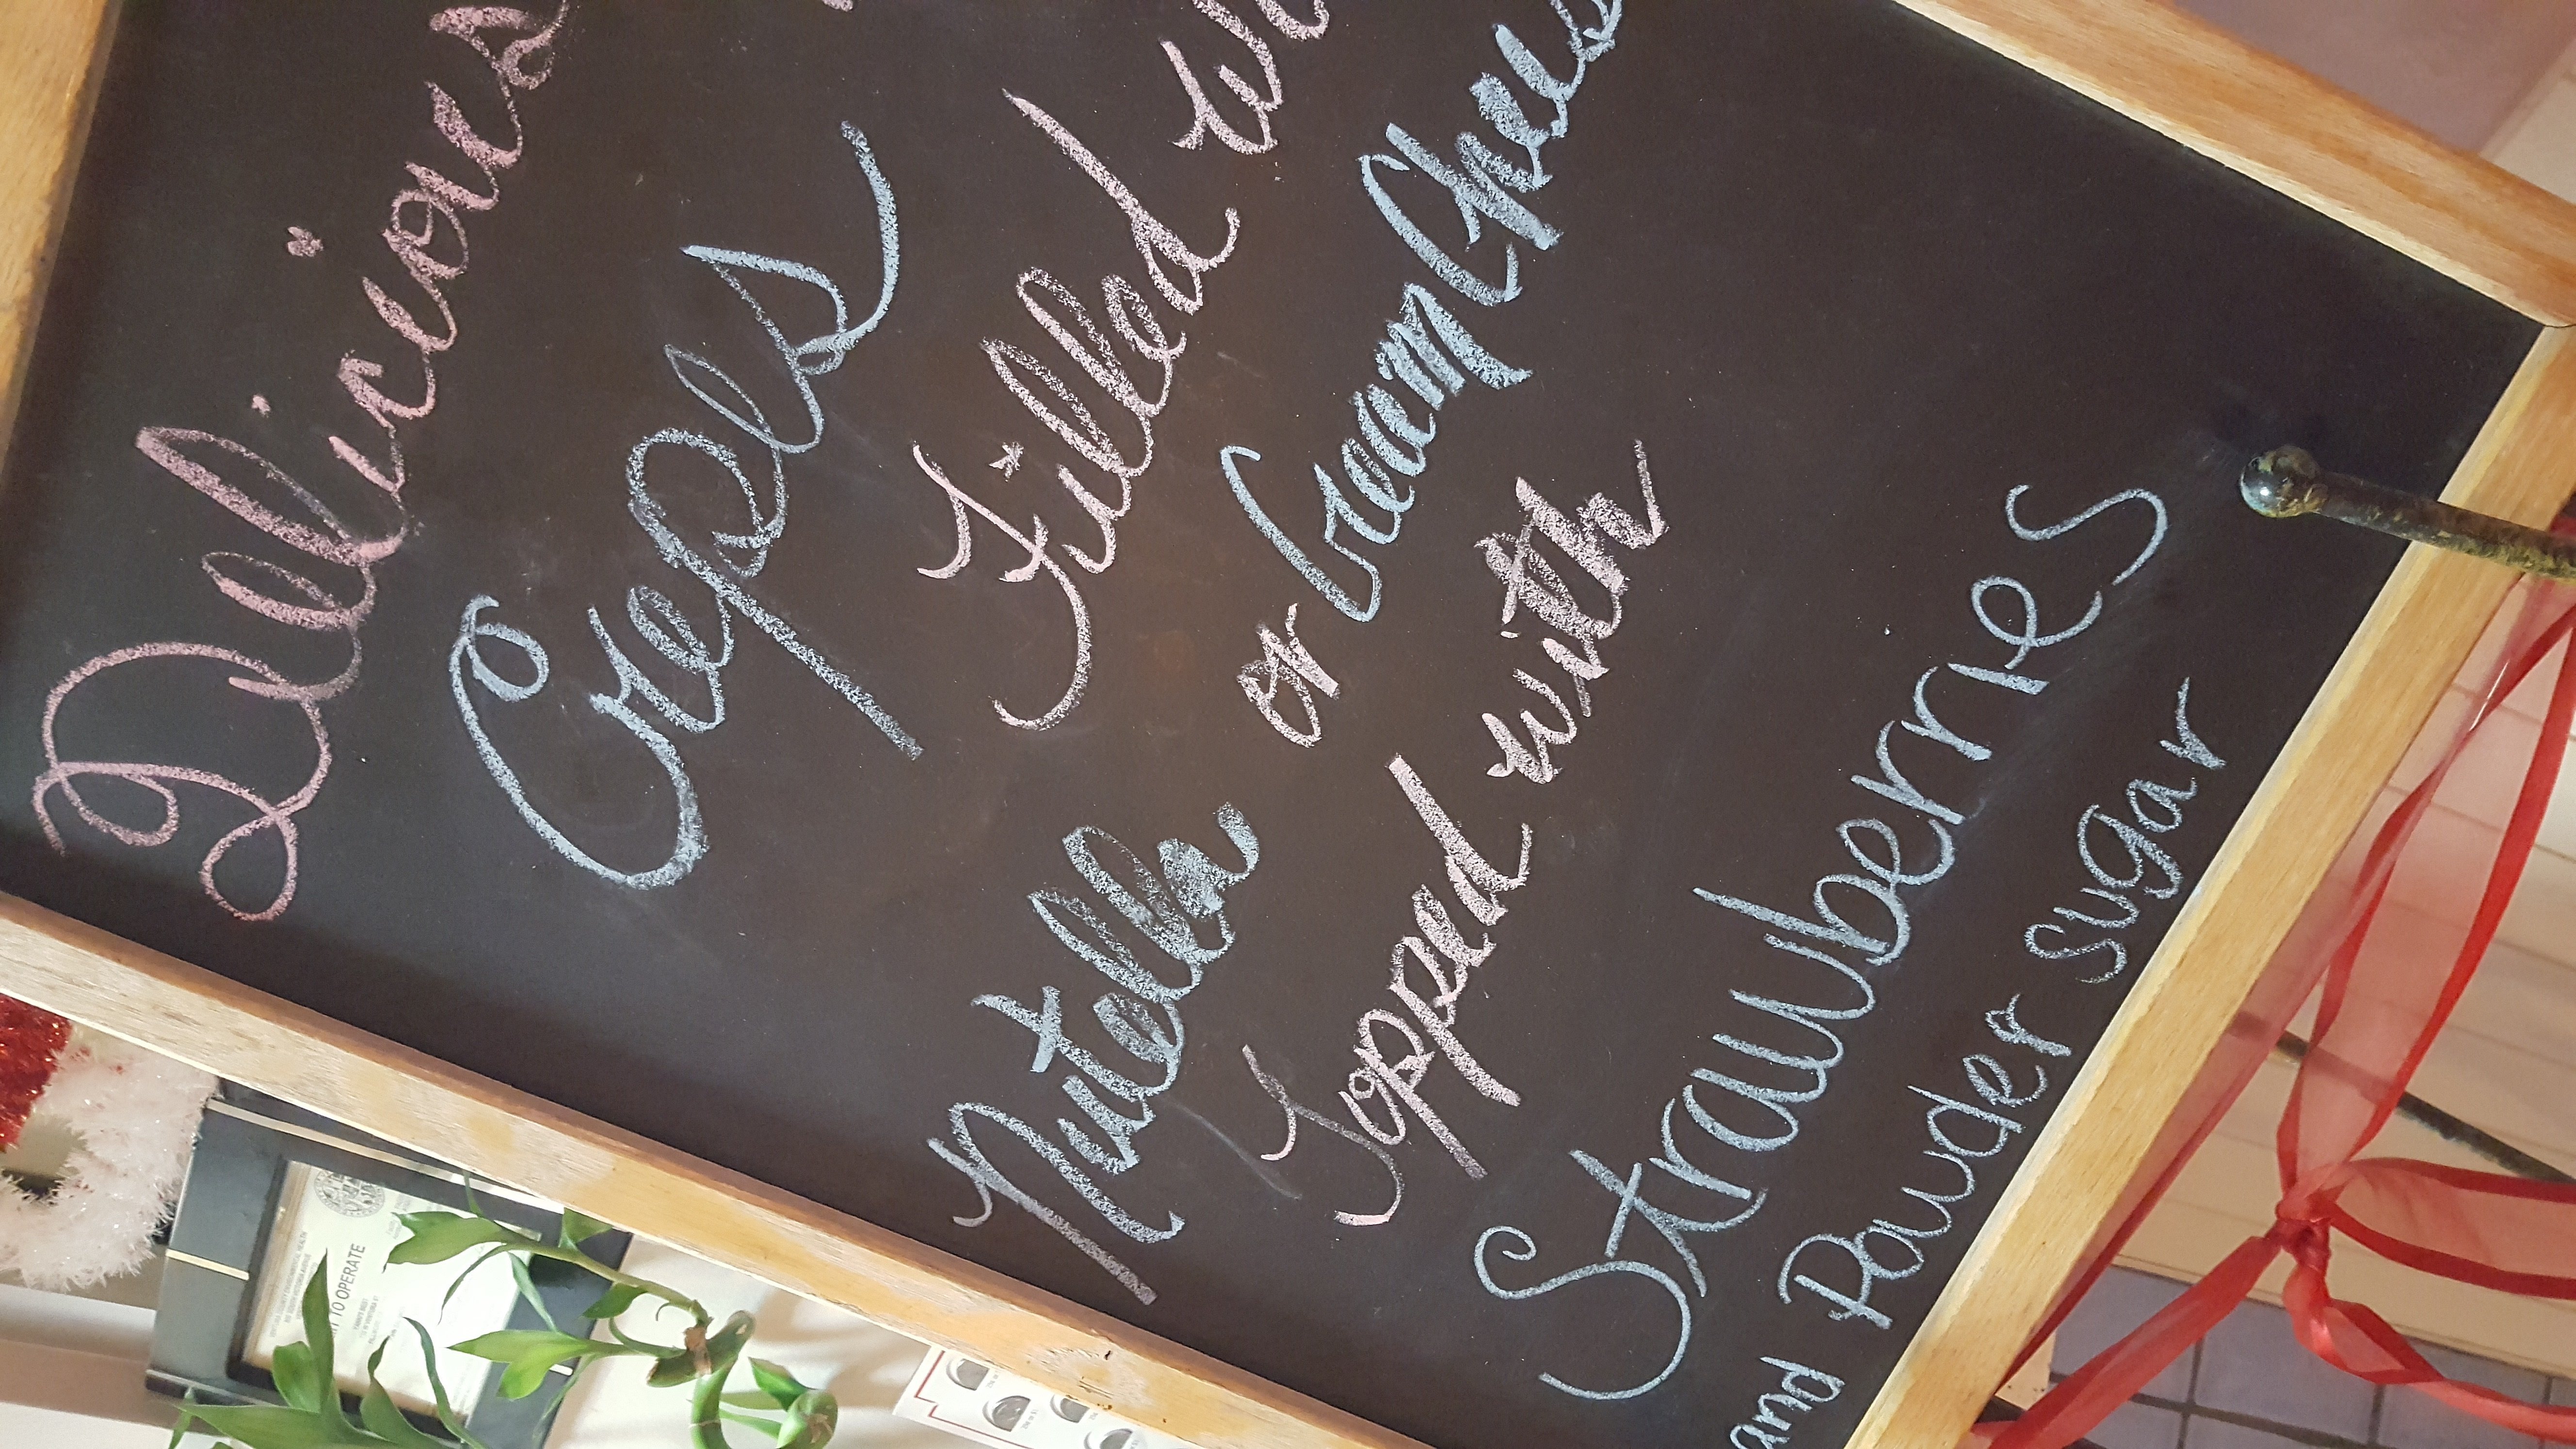 Delicious
Crepes
Filled wi
Nutella or Cream Chees
Topped with
Strawberries
and Powder Sugar
TO OPERATE